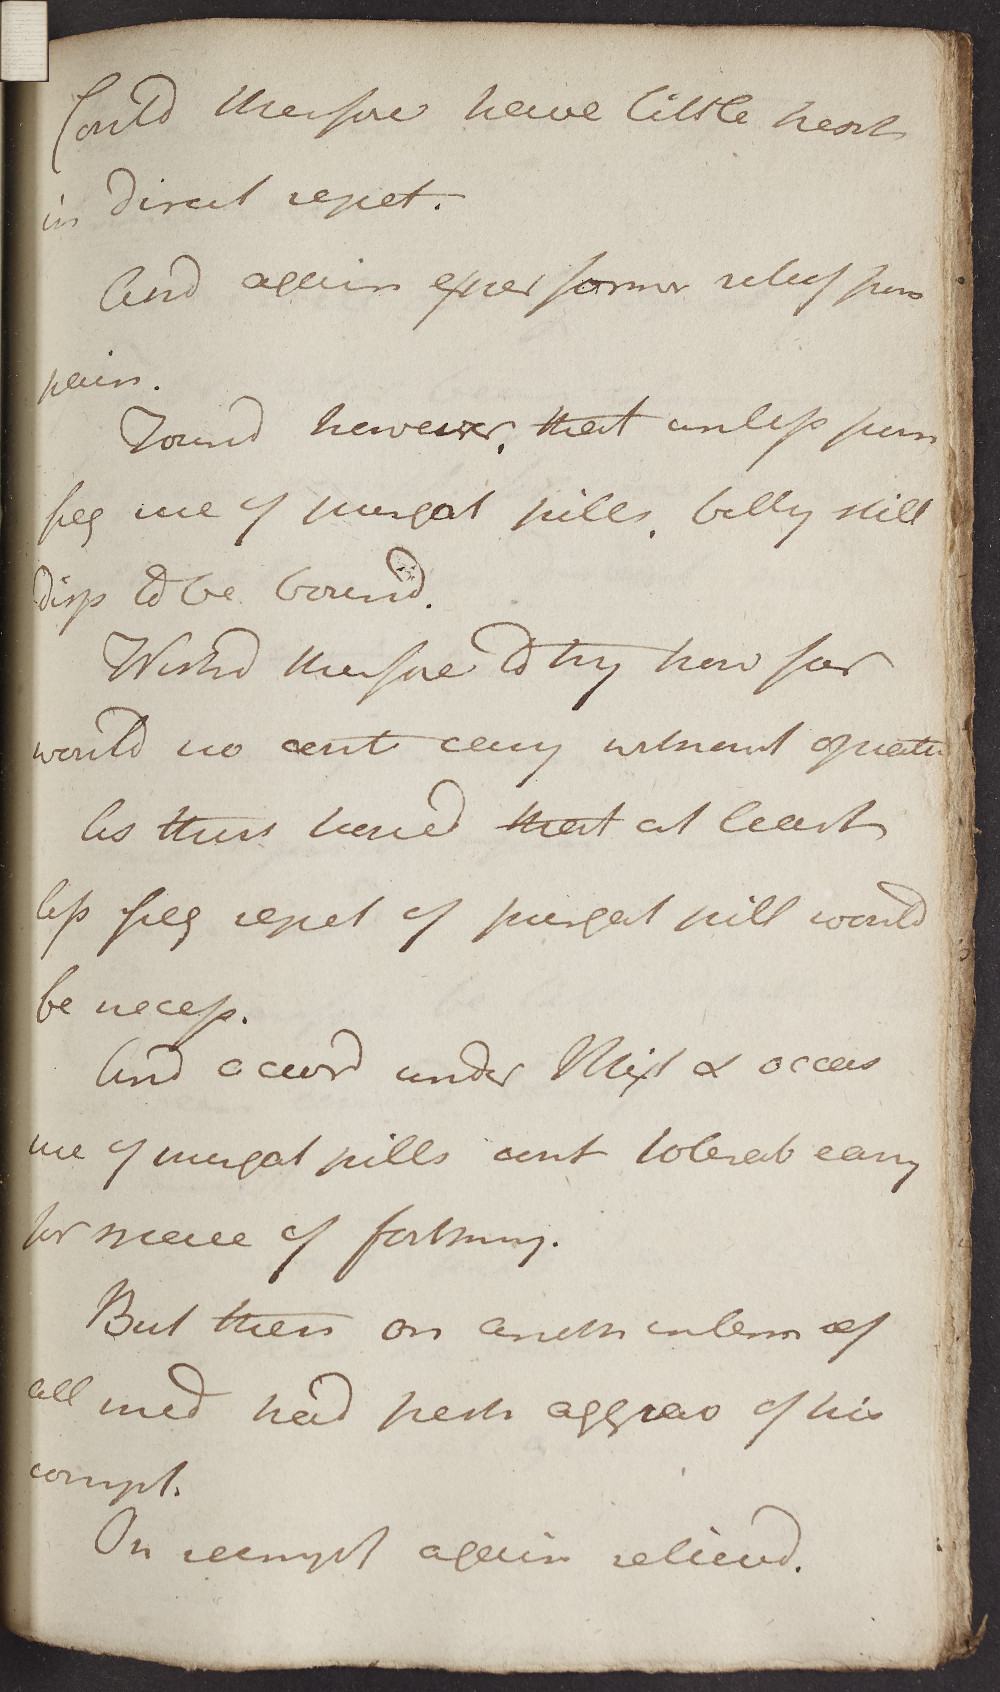 Could therfore have little hesit
in direct repet.
And again exper former relief from
pain.
Found however, that unless from
freq use of purgat pills, belly still
disp to be bound.
Wished therfore to try how far
would no cont easy without opiate
As thus hoped that at least
less freq repet of purgat pill would
be necess.
And accord under Mixt & occas
use of purgat pills cont tolerab easy
for space of fortnig.
But then on anoth interm of
all med had fresh aggrav of his
compt.
On recmpt again relievd.